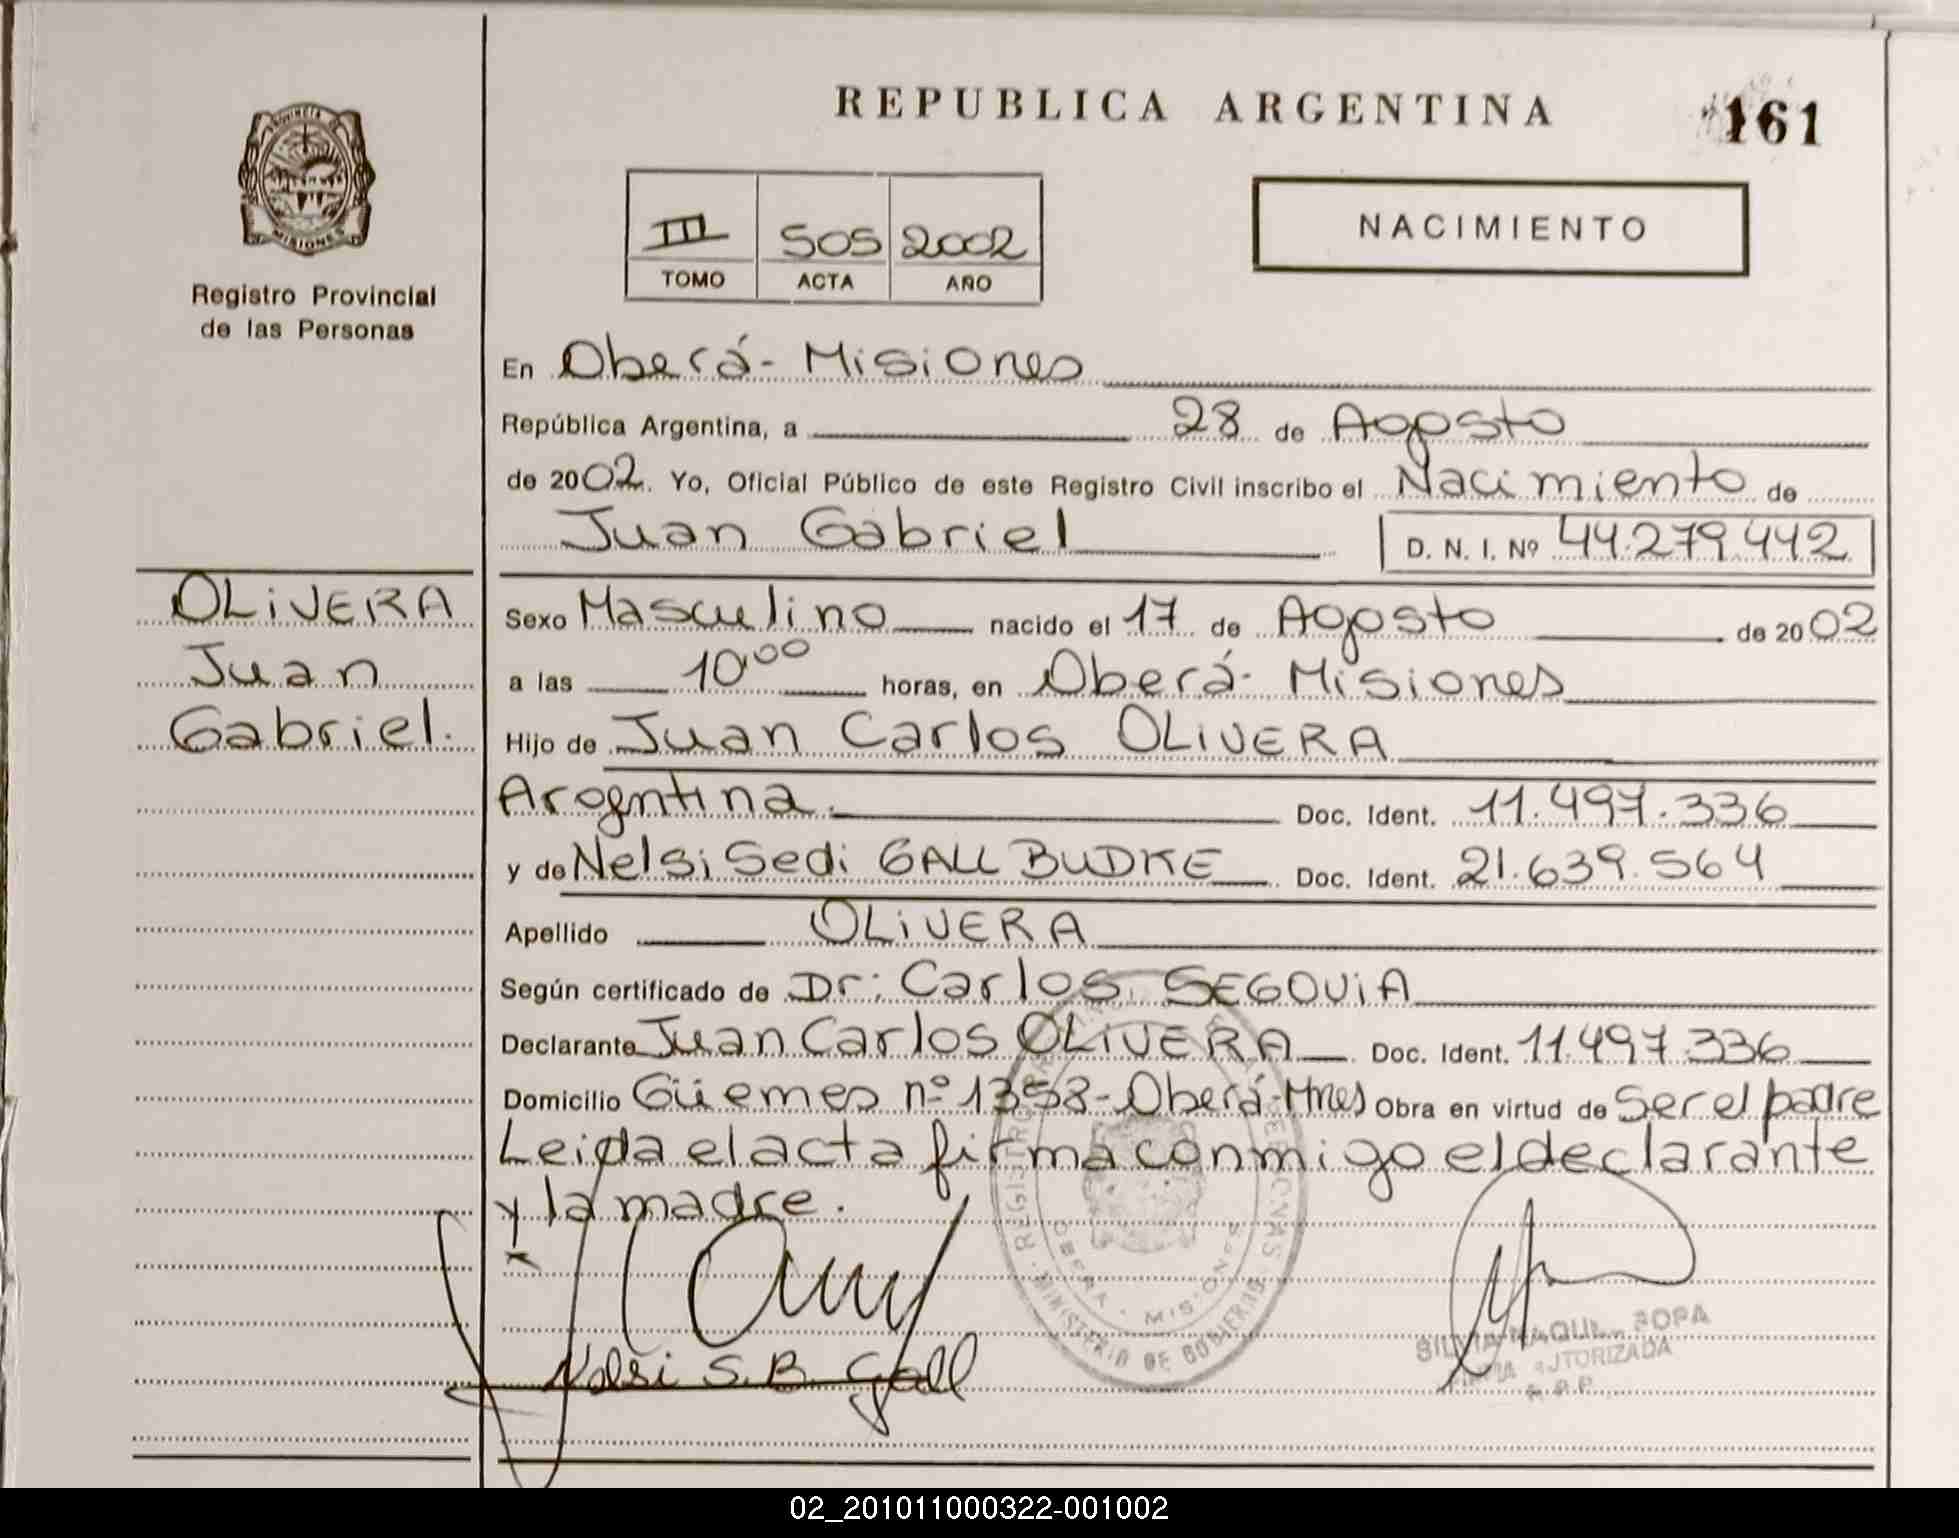 REPUBLICA ARGENTINA
161
PROVINCIA DE
MISIONES
Registro Provincial
de las Personas
III 505 2002
TOMO ACTA AÑO
NACIMIENTO
En Oberá - Misiones
República Argentina, a 28 de Agosto
de 2002. Yo, Oficial Público de este Registro Civil inscribo el Nacimiento de
Juan Gabriel D. N. I. Nº 44.279.442
OLIVERA
Juan
Gabriel.
Sexo Masculino nacido el 17 de Agosto de 2002
a las 10,00 horas, en Oberá - Misiones
Hijo de Juan Carlos OLIVERA
Argentina. Doc. Ident. 11.497.336
y de Nelsi Sedi GALL BUDKE Doc. Ident. 21.639.564
Apellido OLIVERA
Según certificado de Dr: Carlos SEGOVIA
Declarante Juan Carlos OLIVERA Doc. Ident. 11.497.336
Domicilio Güemes nº 1358 - Oberá - Mnes Obra en virtud de Ser el padre
Leida el acta firma conmigo el declarante
y la madre.
Nelsi S. B. Gall
MINISTERIO DE GOBIERNO
OBERA - MISIONES
SILVIA RAQUEL SOPA
AUTORIZADA
02_201011000322-001002